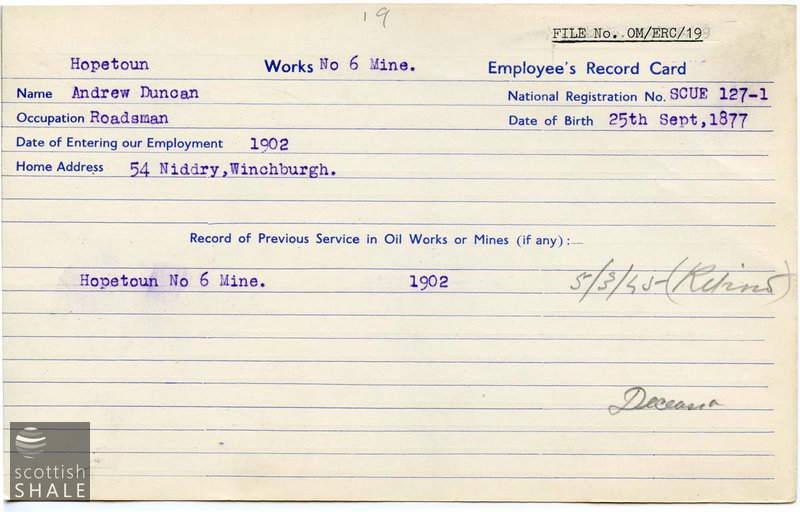 19
FILE No. OM/ERC/19
Hopetoun Works No 6 Mine. Employee's Record Card
Name Andrew Duncan National Registration No. SCUE 127-1
Occupation Roadsman Date of Birth 25th Sept,1877
Date of Entering our Employment 1902
Home Address 54 Niddry,Winchburgh.
Record of Previous Service in Oil Works or Mines (if any):—
Hopetoun No 6 Mine. 1902 5/3/45 (Retired)
Deceased
scottish
SHALE